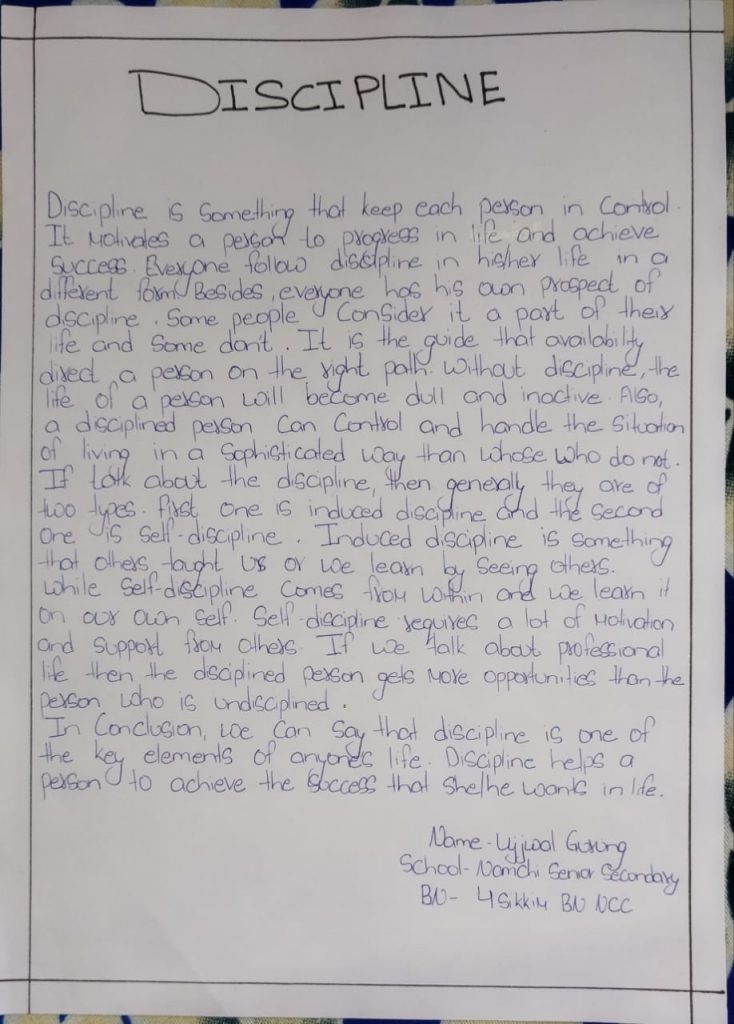 DISCIPLINE
Discipline is something that keep each person in control.
It motivates a person to progress in life and achieve
success. Everyone follow discipline in his/her life in a
different form. Besides, everyone has his own prospect of
discipline. Some people consider it a part of their
life and some don't. It is the guide that availability
direct a person on the right path. Without discipline, the
life of a person will become dull and inactive. Also,
a disciplined person can control and handle the situation
of living in a sophisticated way than whose who do not.
If talk about the discipline, then generally they are of
two types. First one is induced discipline and the second
one is self-discipline. Induced discipline is something
that others taught us or we learn by seeing others.
while self-discipline comes from within and we learn it
on our own self. Self-discipline requires a lot of motivation
and support from others. If we talk about professional
life then the disciplined person gets more opportunities than the
person who is undisciplined.
In conclusion, we can say that discipline is one of
the key elements of anyone's life. Discipline helps a
person to achieve the success that she/he wants in life.
Name- Ujjwal Gurung
School- Namchi Senior Secondary
BN- 4 Sikkim BN NCC